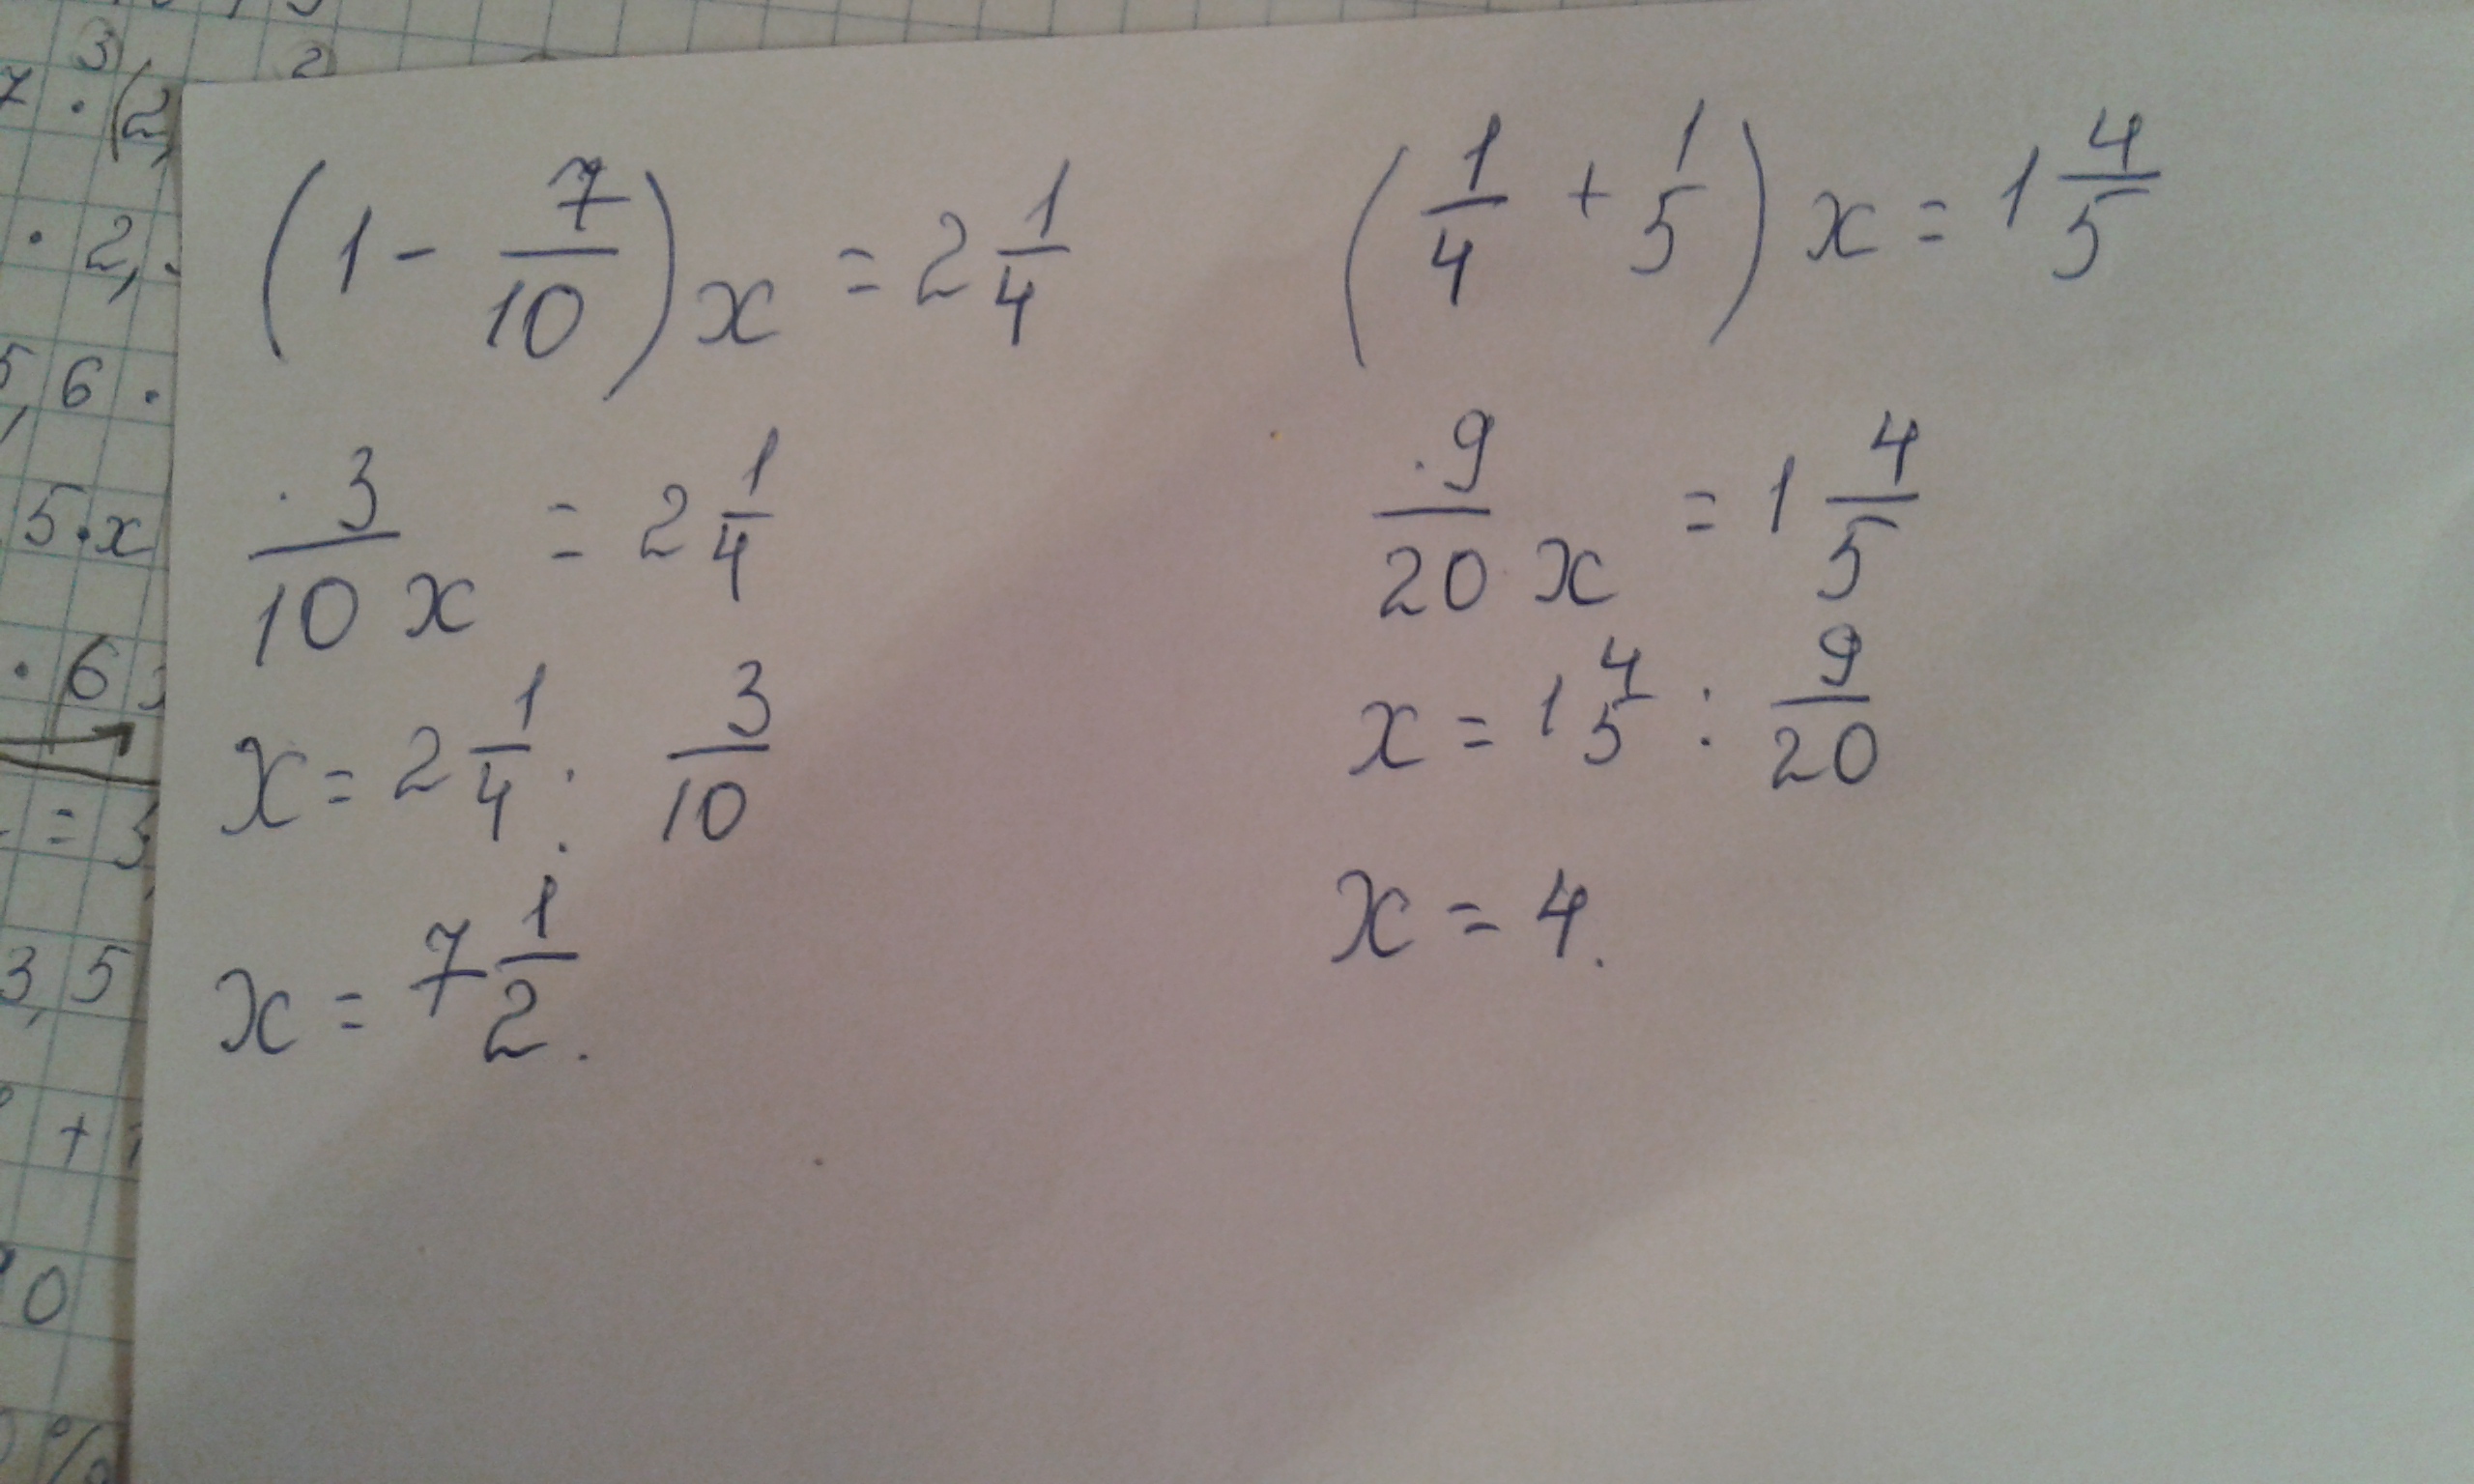 (1 - 7/10) x = 2 1/4
3/10 x = 2 1/4
x = 2 1/4 : 3/10
x = 7 1/2.
(1/4 + 1/5) x = 1 4/5
9/20 x = 1 4/5
x = 1 4/5 : 9/20
x = 4.
7 · (2,
· 2,
5,6 ·
5·x
· 6
= 3,
3,5
+
0